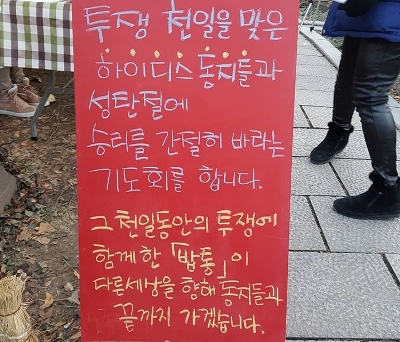 투쟁 천일을 맞은
하이디스 동지들과
성탄절에
승리를 간절히 바라는
기도회를 합니다.
그 천일동안의 투쟁에
함께한 「밥통」이
다른세상을 향해 동지들과
끝까지 가겠습니다.